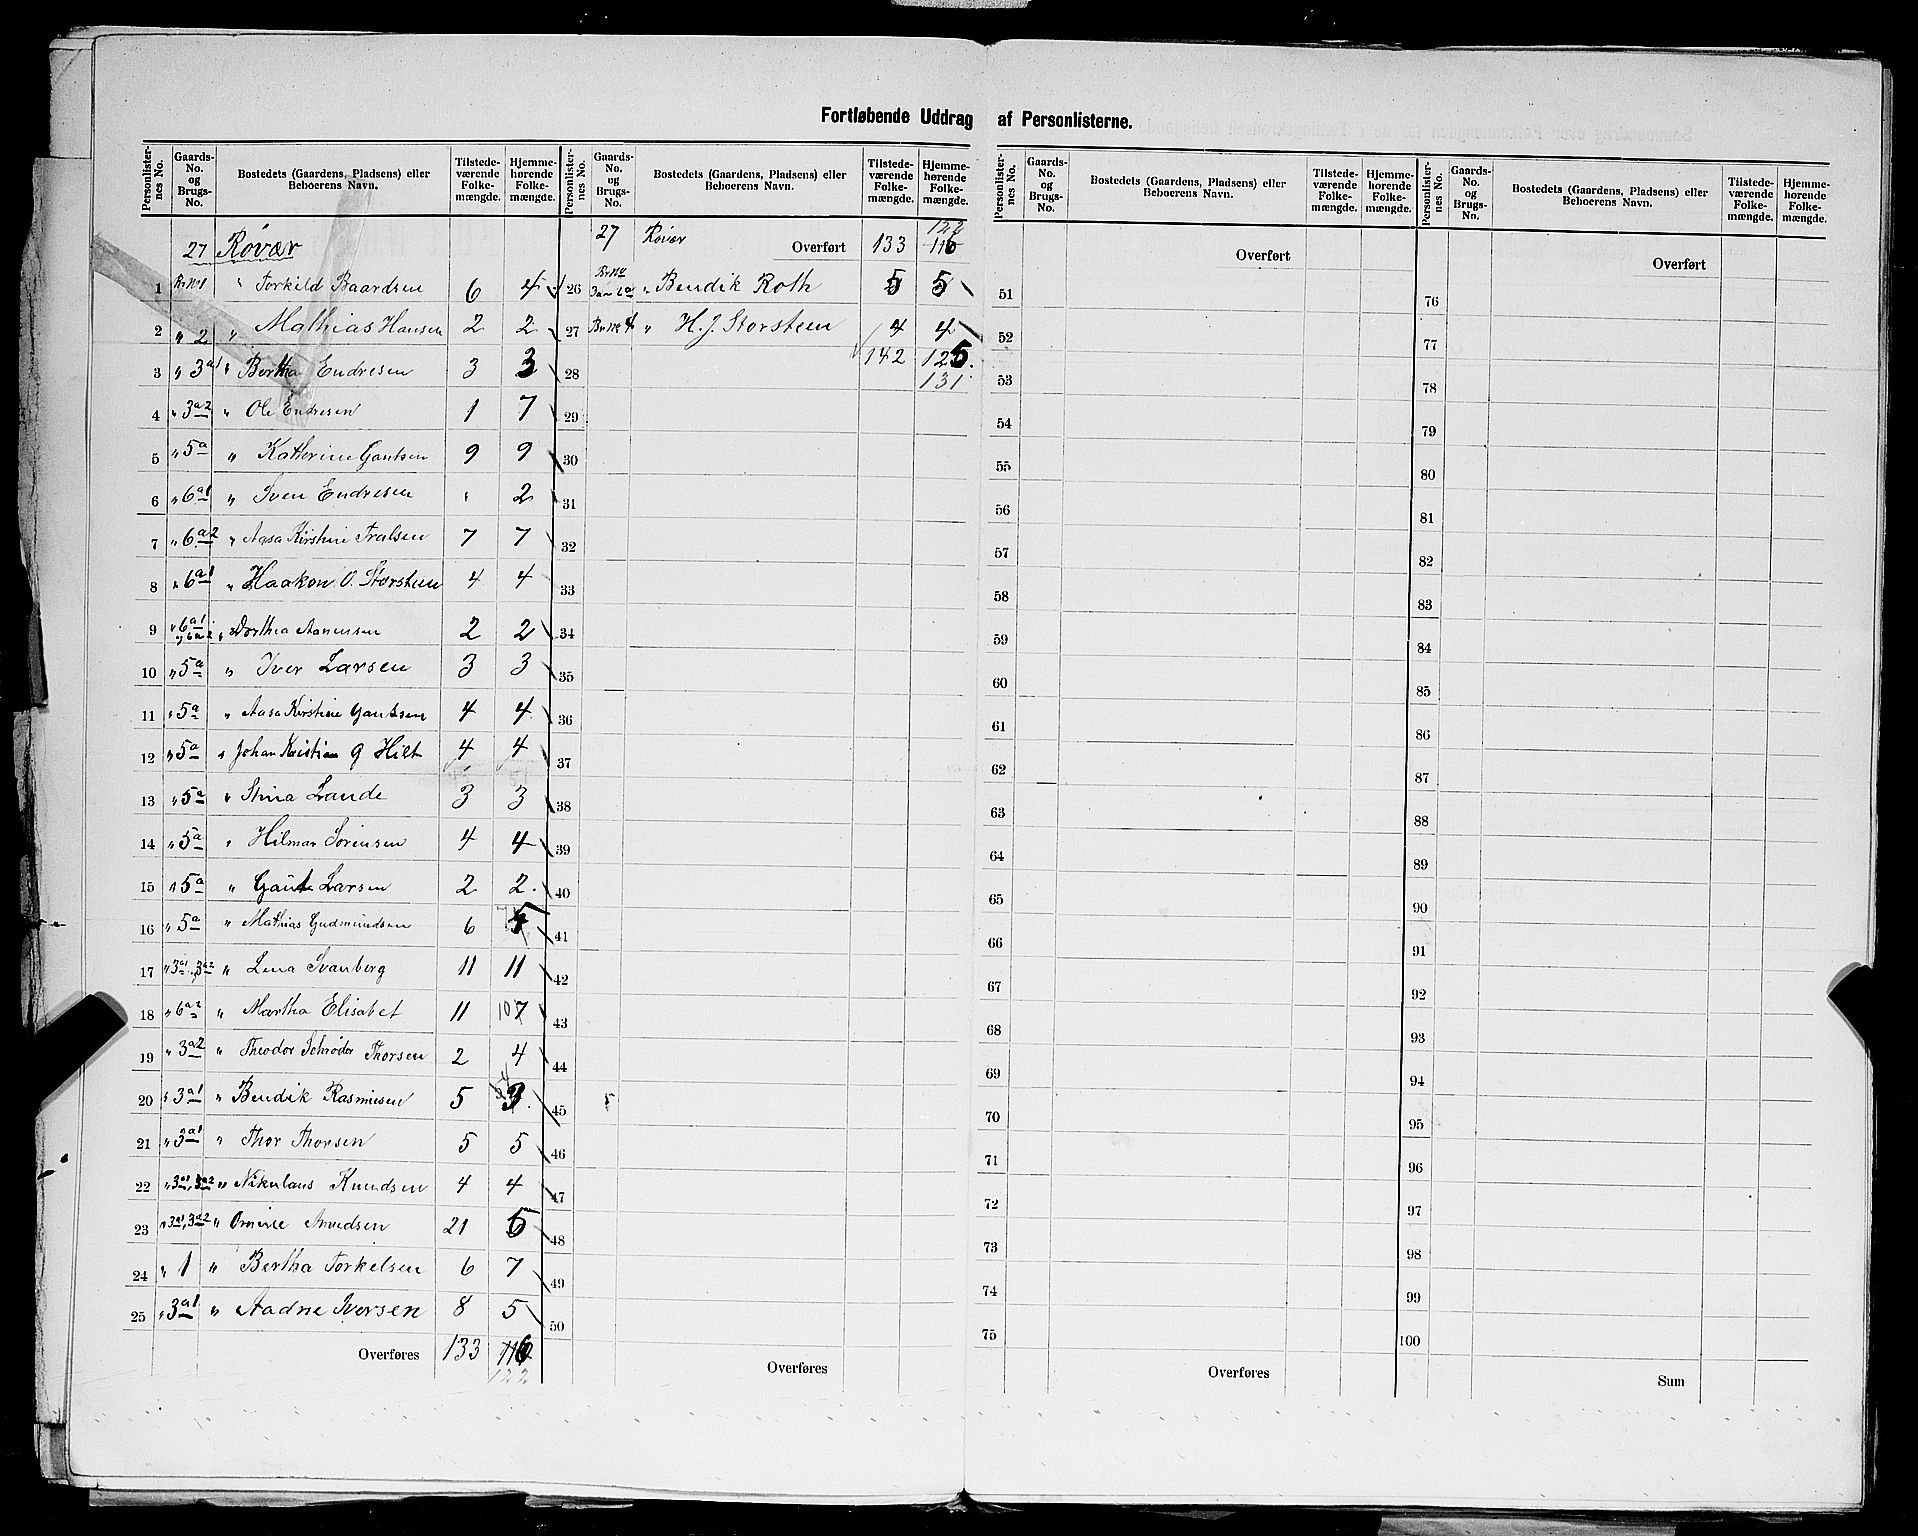 Fortløbende Uddrag af Personlisterne.
Personlisternes No. Gaards-No. og Brugs-No. Bostedets (Gaardens, Pladsens) eller Beboerens Navn. Tilstedeværende Folkemængde. Hjemmehørende Folkemængde.
27 Røvær
1 Br No 1 " Torkild Baardsen 6 4
2 " 2 " Mathias Hansen 2 2
3 " 3a1 " Bertha Endresen 3 3
4 " 3a2 " Ole Endresen 1 7
5 " 5a " Katherine Gautsen 9 9
6 " 6a1 " Sven Endresen " 2
7 " 6a2 " Aasa Kirstine 7 7
8 " 6a1 " Haakon O. Storsteen 4 4
9 " 6a1 " Dorthea 2 2
10 " 5a " Iver Larsen 3 3
11 " 5a " Aasa Kirstine Gautsen 4 4
12 " 5a " Johan Kristian G Hilt 4 4
13 " 5a " Stina Lande 3 3
14 " 5a " Hilmar Sørensen 4 4
15 " 5a " Gaut Larsen 2 2
16 " 5a " Mathias Gudmundsen 6
17 " 3a1, 3a2 " Lena Svanberg 11 11
18 " 6a2 " Martha Elisabet 11 10 7
19 " 3a2 " Theodor Schrøder Thorsen 2 4
20 " 3a1 " Bendik Rasmusen 5 3
21 " 3a1 " Thor Thorsen 5 5
22 " 3a1, 3a2 " Nikulaus Knudsen 4 4
23 " 3a1, 3a2 " 21
24 " 1 " Bertha Torkelsen 6 7
25 " 3a1 " Aadne Iversen 8 5
Overføres 133 116
122
Personlisternes No. Gaards-No. og Brugs-No. Bostedets (Gaardens, Pladsens) eller Beboerens Navn. Tilstedeværende Folkemængde. Hjemmehørende Folkemængde.
122
27 Røvær Overført 133 116
26 Br No " Bendik Roth 5 5
27 Br No 4 " H. J. Storsteen 4 4
28 142 125
131
29
30
31
32
33
34
35
36
37
38
39
40
41
42
43
44
45
46
47
48
49
50
Overføres
Personlisternes No. Gaards-No. og Brugs-No. Bostedets (Gaardens, Pladsens) eller Beboerens Navn. Tilstedeværende Folkemængde. Hjemmehørende Folkemængde.
Overført
51
52
53
54
55
56
57
58
59
60
61
62
63
64
65
66
67
68
69
70
71
72
73
74
75
Overføres
Personlisternes No. Gaards-No. og Brugs-No. Bostedets (Gaardens, Pladsens) eller Beboerens Navn. Tilstedeværende Folkemængde. Hjemmehørende Folkemængde.
Overført
76
77
78
79
80
81
82
83
84
85
86
87
88
89
90
91
92
93
94
95
96
97
98
99
100
Sum